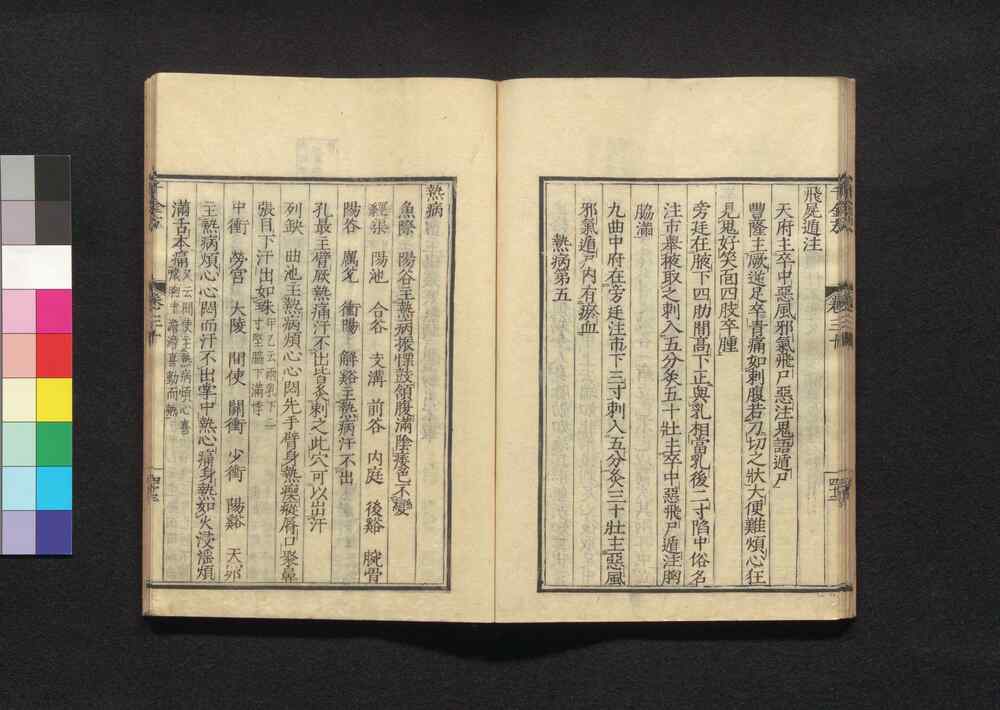 飛屍遁注
天府主卒中惡風邪氣飛尸惡注鬼語遁尸
豐隆主厥逆足卒青痛如刺腹若刀切之狀大便難煩心狂
見鬼好笑面四肢卒腫
旁廷在腋下四肋間高下正與乳相當乳後二寸陷中俗名
注市舉掖取之刺入五分灸五十壯主卒中惡飛尸遁注胸
脇滿
九曲中府在旁廷注市下三寸刺入五分灸三十壯主惡風
邪氣遁尸內有瘀血
熱病第五
熱病
魚際 陽谷主熱病振慄鼓頷腹滿陰痿色不變
經渠 陽池 合谷 支溝 前谷 內庭 後谿 腕骨
陽谷 厲兌 衝陽 解谿主熱病汗不出
孔最主臂厥熱痛汗不出皆灸刺之此穴可以出汗
列缺 曲池主熱病煩心心悶先手臂身熱瘈瘲脣口聚鼻
張目下汗出如珠甲乙云兩乳下三寸堅脇下滿悸
中衝 勞宮 大陵 間使 關衝 少衝 陽谿 天
主熱病煩心心悶而汗不出掌中熱心痛身熱如火浸淫煩
滿舌本痛 云間使主熱病煩心喜 胸中澹澹喜動而熱
卷三十